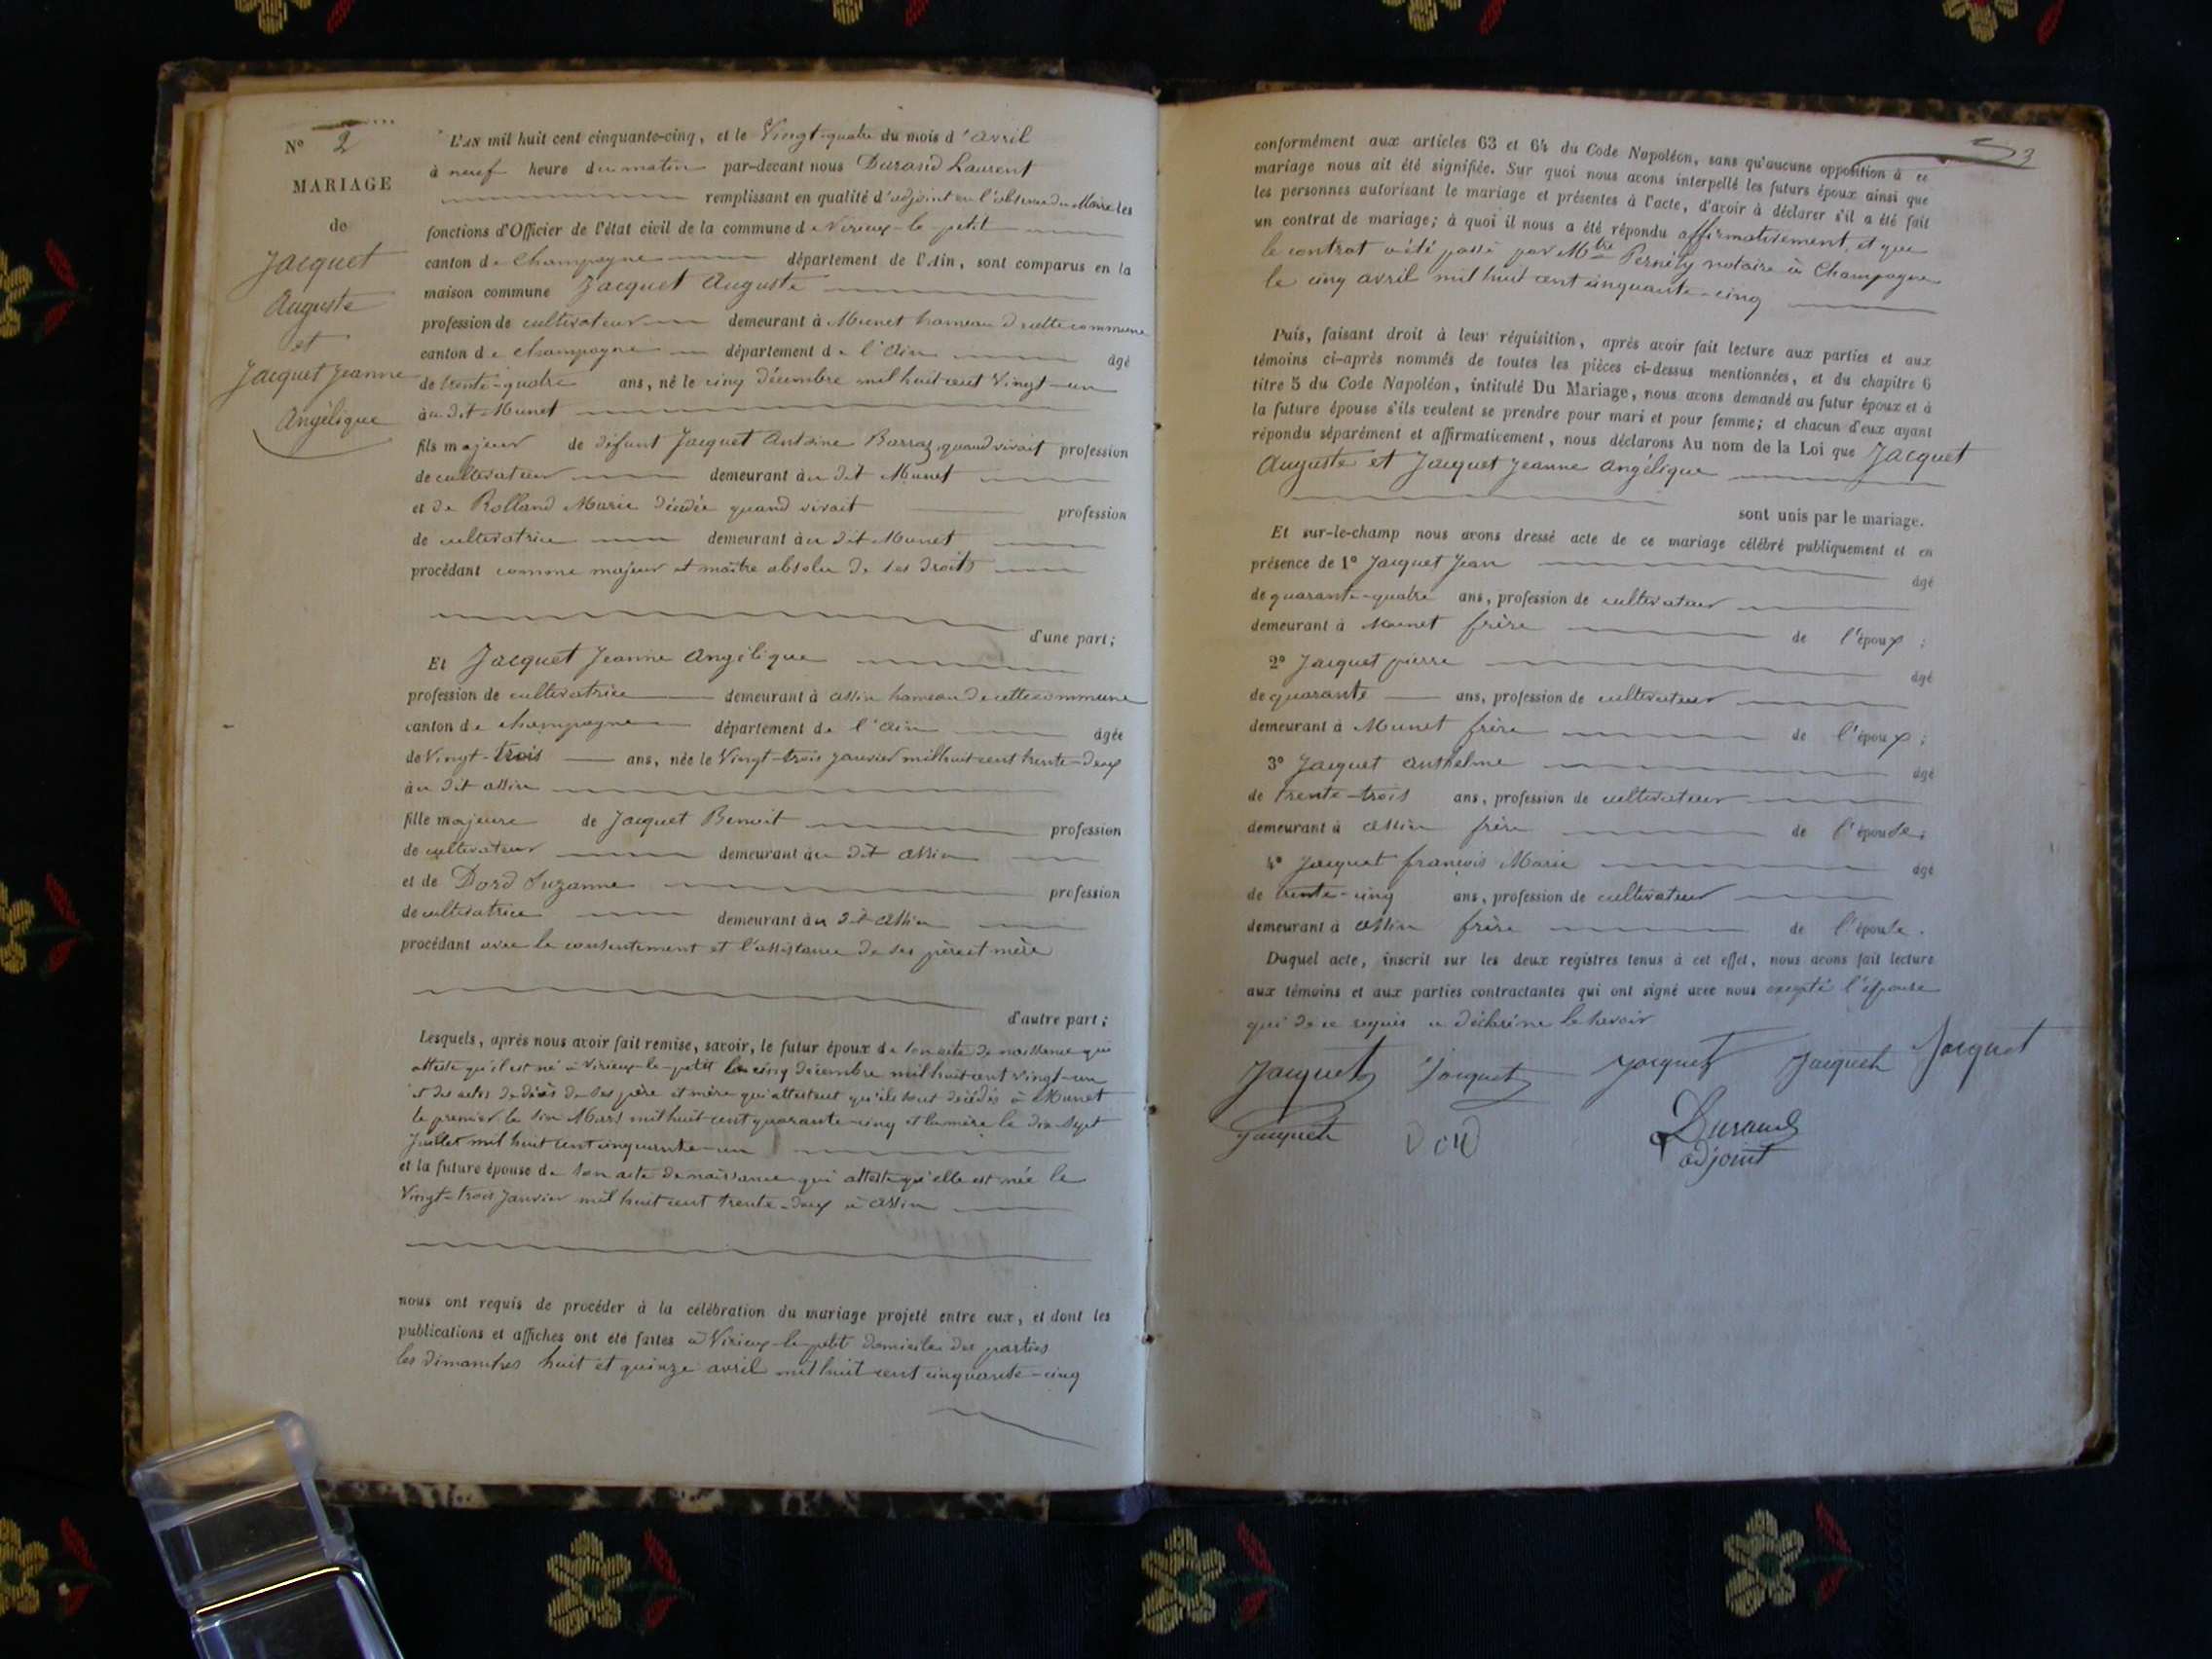 N° 2
MARIAGE
de
Jacquet
Auguste
et
Jacquet Jeanne
Angélique
L'AN mil huit cent cinquante-cinq, et le Vingt-quatre du mois d'avril
à neuf heure du matin par-devant nous Durand Laurent
remplissant en qualité d'adjoint en l'absence du Maire les
fonctions d'Officier de l'état civil de la commune de Virieux-le-petit
canton de Champagne département de l'Ain, sont comparus en la
maison commune Jacquet Auguste
profession de cultivateur demeurant à Munet hameau de cette commune
canton de champagne département de l'ain âgé
de trente-quatre ans, né le cinq décembre mil huit cent vingt-un
au dit Munet
fils majeur de défunt Jacquet Antoine Barraz quand vivait profession
de cultivateur demeurant au dit Munet
et de Rolland Marie décédée quand vivait profession
de cultivatrice demeurant au dit Munet
procédant comme majeur et maître absolu de ses droits
d'une part;
Et Jacquet Jeanne Angélique
profession de cultivatrice demeurant à assin hameau de cette commune
canton de champagne département de l'ain âgée
de Vingt-trois ans, née le Vingt-trois janvier mil huit cent trente-deux
au dit assin
fille majeure de Jacquet Benoit profession
de cultivateur demeurant au dit assin
et de Dord Suzanne profession
de cultivatrice demeurant au dit assin
procédant avec le consentement et l'assistance de ses père et mère
d'autre part;
Lesquels, après nous avoir fait remise, savoir, le futur époux de son acte de naissance qui
atteste qu'il est né à Virieux-le-petit le cinq décembre mil huit cent vingt-un
et des actes de décès de ses père et mère qui attestent qu'ils sont décédés à Munet
le premier le Mars mil huit cent quarante-cinq et la mère le dix-sept
Juillet mil huit cent cinquante-un
et la future épouse de son acte de naissance qui atteste qu'elle est née le
Vingt-trois Janvier mil huit cent trente-deux à assin
nous ont requis de procéder à la célébration du mariage projeté entre eux, et dont les
publications et affiches ont été faites à Virieux-le-petit domicile des parties
les dimanches huit et quinze avril mil huit cent cinquante-cinq
3
conformément aux articles 63 et 64 du Code Napoléon, sans qu'aucune opposition à ce
mariage nous ait été signifiée. Sur quoi nous avons interpellé les futurs époux ainsi que
les personnes autorisant le mariage et présentes à l'acte, d'avoir à déclarer s'il a été fait
un contrat de mariage; à quoi il nous a été répondu affirmativement, et que
le contrat a été passé par Mtre notaire à Champagne
le cinq avril mil huit cent cinquante-cinq
Puis, faisant droit à leur réquisition, après avoir fait lecture aux parties et aux
témoins ci-après nommés de toutes les pièces ci-dessus mentionnées, et du chapitre 6
titre 5 du Code Napoléon, intitulé Du Mariage, nous avons demandé au futur époux et à
la future épouse s'ils veulent se prendre pour mari et pour femme; et chacun d'eux ayant
répondu séparément et affirmativement, nous déclarons Au nom de la Loi que Jacquet
Auguste et Jacquet Jeanne Angélique
sont unis par le mariage.
Et sur-le-champ nous avons dressé acte de ce mariage célébré publiquement et en
présence de 1° Jacquet Jean âgé
de quarante-quatre ans, profession de cultivateur
demeurant à Munet frère de l'époux;
2° Jacquet pierre âgé
de quarante ans, profession de cultivateur
demeurant à Munet frère de l'époux;
3° Jacquet anthelme âgé
de trente-trois ans, profession de cultivateur
demeurant à assin frère de l'épouse;
4° Jacquet françois Marie âgé
de trente-cinq ans, profession de cultivateur
demeurant à assin frère de l'épouse.
Duquel acte, inscrit sur les deux registres tenus à cet effet, nous avons fait lecture
aux témoins et aux parties contractantes qui ont signé avec nous excepté l'épouse
qui de ce requis a déclaré ne le savoir
Jacquet Jacquet Jacquet Jacquet Jacquet
Jacquet Dord Durand
adjoint